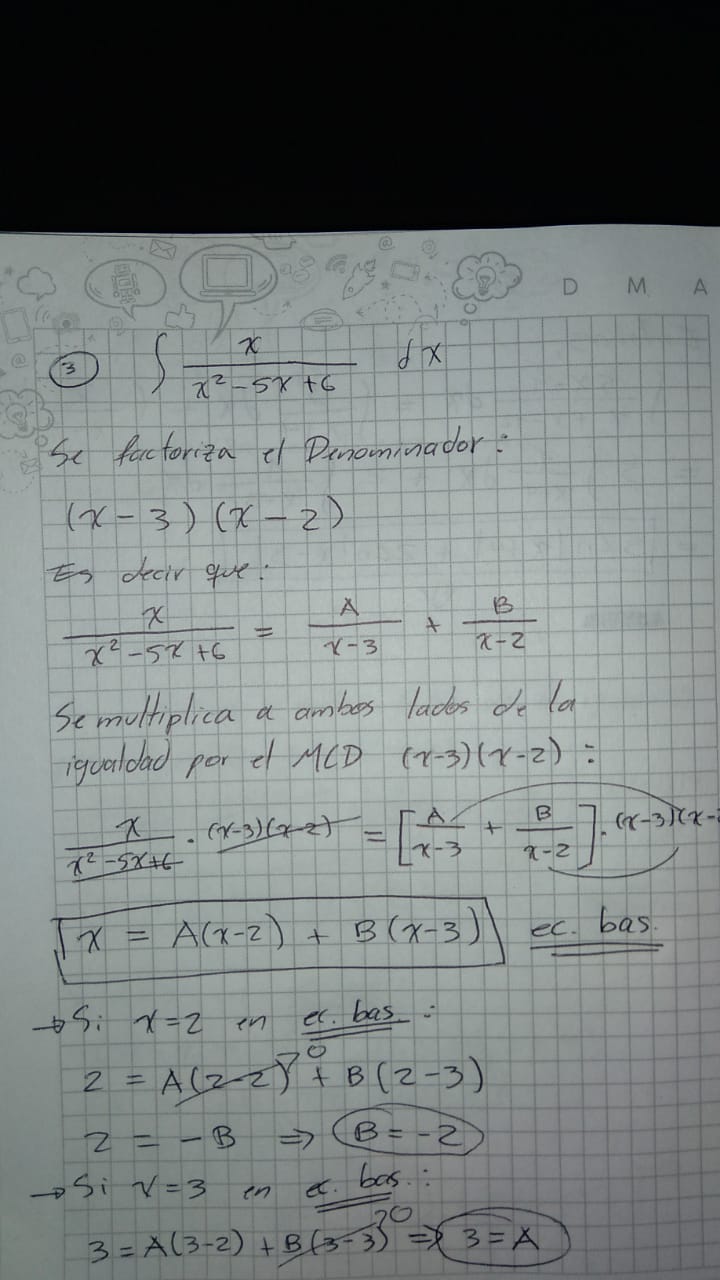 D M A
3 ∫ x/(x² - 5x + 6) dx
Se factoriza el Denominador:
(x - 3) (x - 2)
Es decir que:
x/(x² - 5x + 6) = A/(x - 3) + B/(x - 2)
Se multiplica a ambos lados de la
igualdad por el MCD (x-3)(x-2):
x/(x² - 5x + 6) · (x-3)(x-2) = [A/(x-3) + B/(x-2)] · (x-3)(x-2
x = A(x-2) + B(x-3) ec. bas.
→ Si x=2 en ec. bas.:
2 = A(2-2)→0 + B(2-3)
2 = -B ⇒ B = -2
→ Si x=3 en ec. bas.:
3 = A(3-2) + B(3-3)→0 ⇒ 3 = A